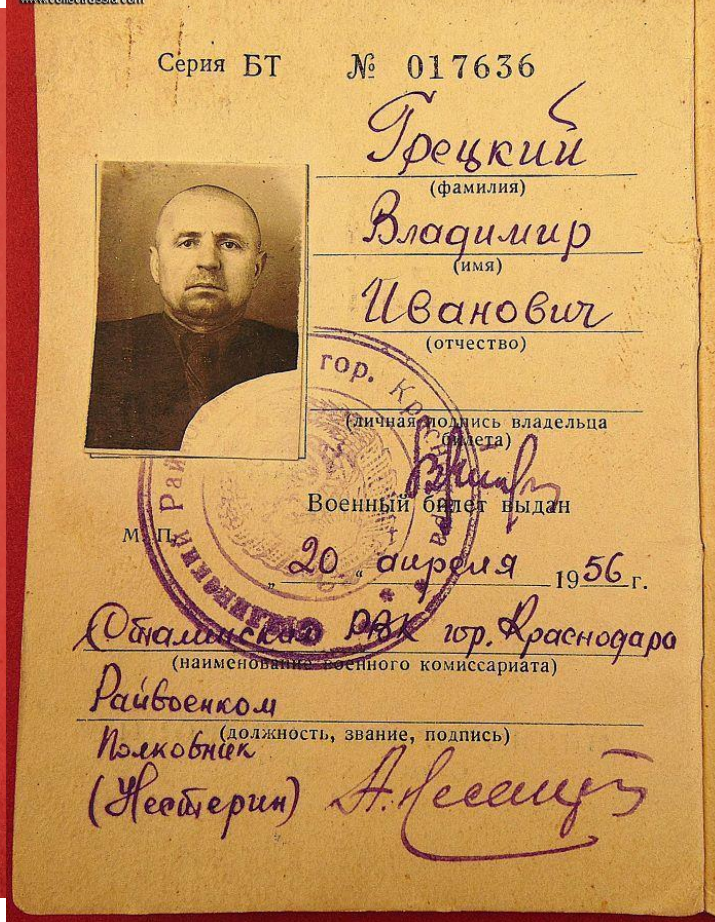 www.collectrussia.com
Серия БТ № 017636
Грецкий
(фамилия)
Владимир
(имя)
Иванович
(отчество)
(личная подпись владельца
билета)
Военный билет выдан
М. П.
„ 20 “ апреля 1956 г.
Сталинский РВК гор. Краснодара
(наименование военного комиссариата)
Райвоенком
(должность, звание, подпись)
Полковник
(Нестерин)
Сталинский Рай гор. Красн